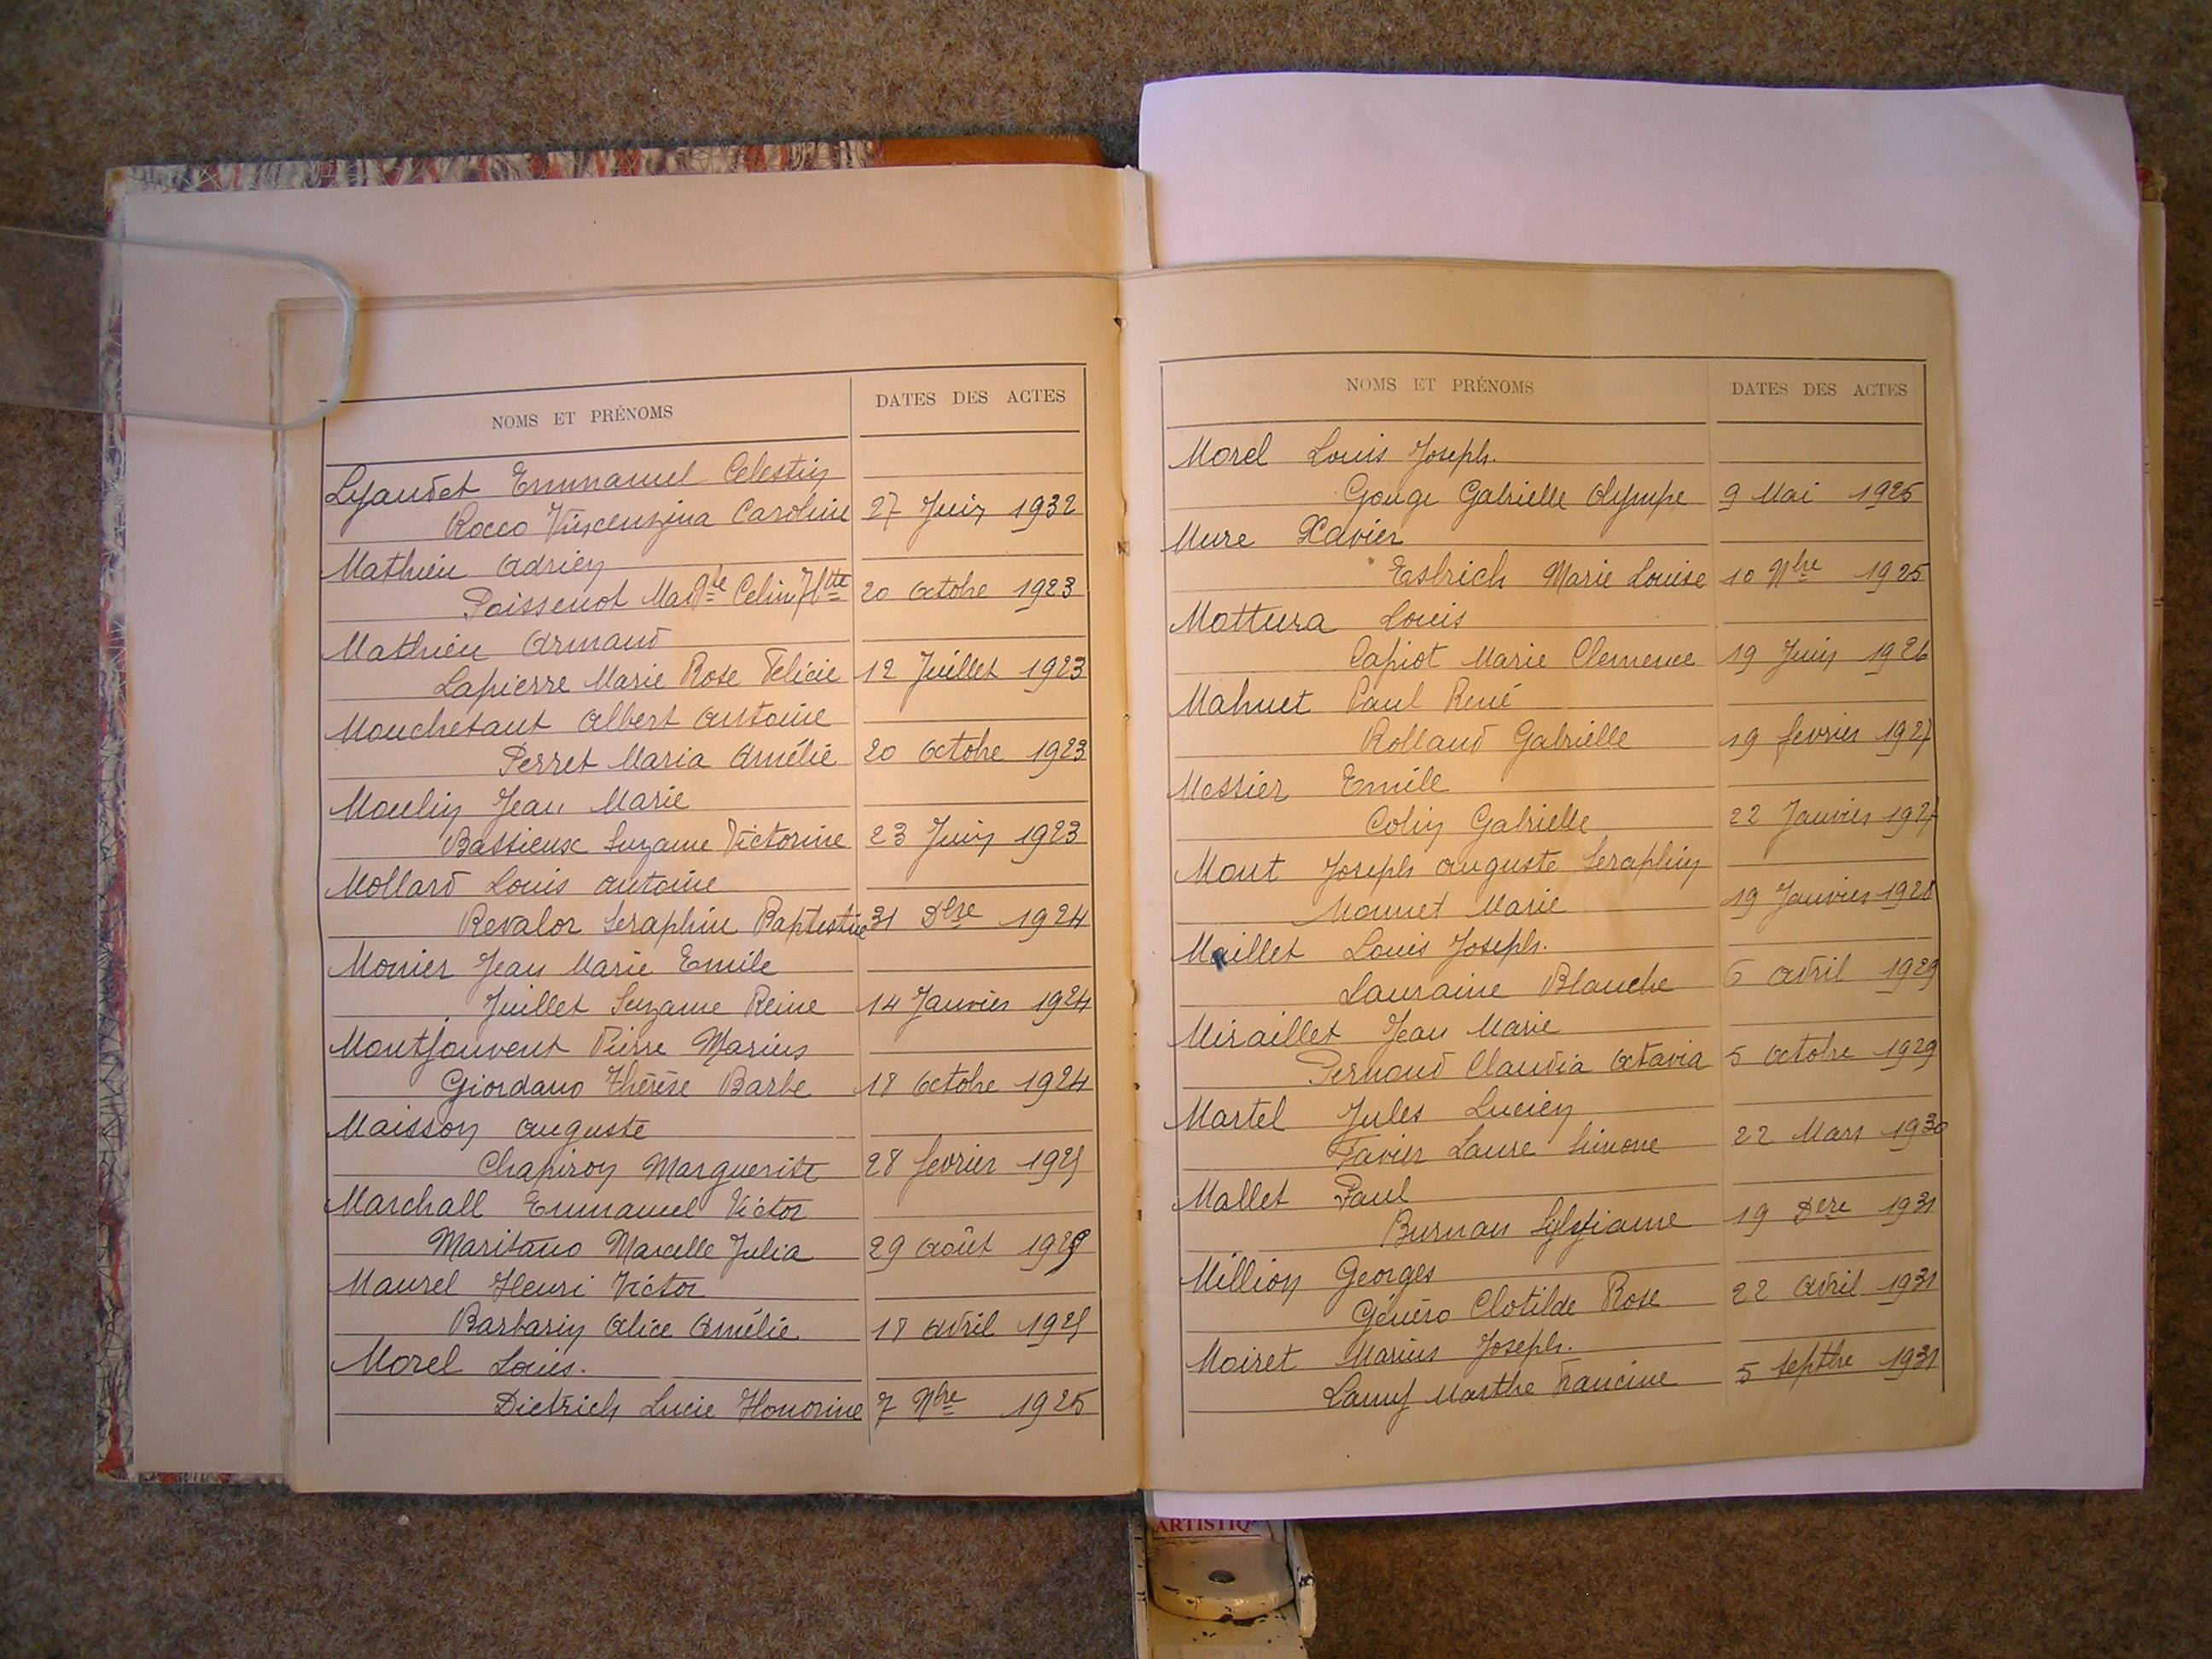 NOMS ET PRÉNOMS DATES DES ACTES
Lyaudet Emmanuel Celestin
Rocco Vincenzina Caroline 27 Juin 1932
Mathieu Adrien
Poissenot Celine 20 Octobre 1923
Mathieu Armand
Lapierre Marie Rose Félicie 12 Juillet 1923
Mouchetant Albert Antoine
Perret Maria Amélie 20 Octobre 1923
Moulin Jean Marie
Bassieux Suzanne Victorine 23 Juin 1923
Mollard Louis Antoine
Revalor Seraphine Baptistine 31 Dbre 1924
Monier Jean Marie Emile
Juillet Suzanne Reine 14 Janvier 1924
Montfouvent Pierre Marius
Giordano Thérèse Barbe 18 Octobre 1924
Maisson Auguste
Chapiron Marguerite 28 fevrier 1925
Marchall Emmanuel Victor
Maritano Marcelle Julia 29 Août
Maurel Henri Victor
Barbarin Alice Amélie 18 Avril 1925
Morel Louis.
Dietrich Lucie Honorine 7 Nbre 1925
NOMS ET PRÉNOMS DATES DES ACTES
Morel Louis Joseph.
Gouge Gabrielle Olympe 9 Mai 1925
Mure Xavier
Estrich Marie Louise 10 Nbre 1925
Mottura Louis
Capiot Marie Clemence 19 Juin 1926
Mahuet Paul René
Rolland Gabrielle 19 fevrier 1927
Messier Emile
Colin Gabrielle 22 Janvier 1927
Mont Joseph Auguste Seraphin
Monnet Marie 19 Janvier 1928
Maillet Louis Joseph.
Lauraine Blanche 6 Avril 1929
Miraillet Jean Marie
Pernoud Claudia Octavia 5 Octobre 1929
Martel Jules Lucien
Favier Laure Simone 22 Mars 1930
Mallet Paul
Burnan 19 Dbre 1931
Million Georges
Généro Clotilde Rose 22 Avril 1931
Moiret Marius Joseph.
Lamy Marthe Francine 5 Septbre 1931
ARTISTIQ